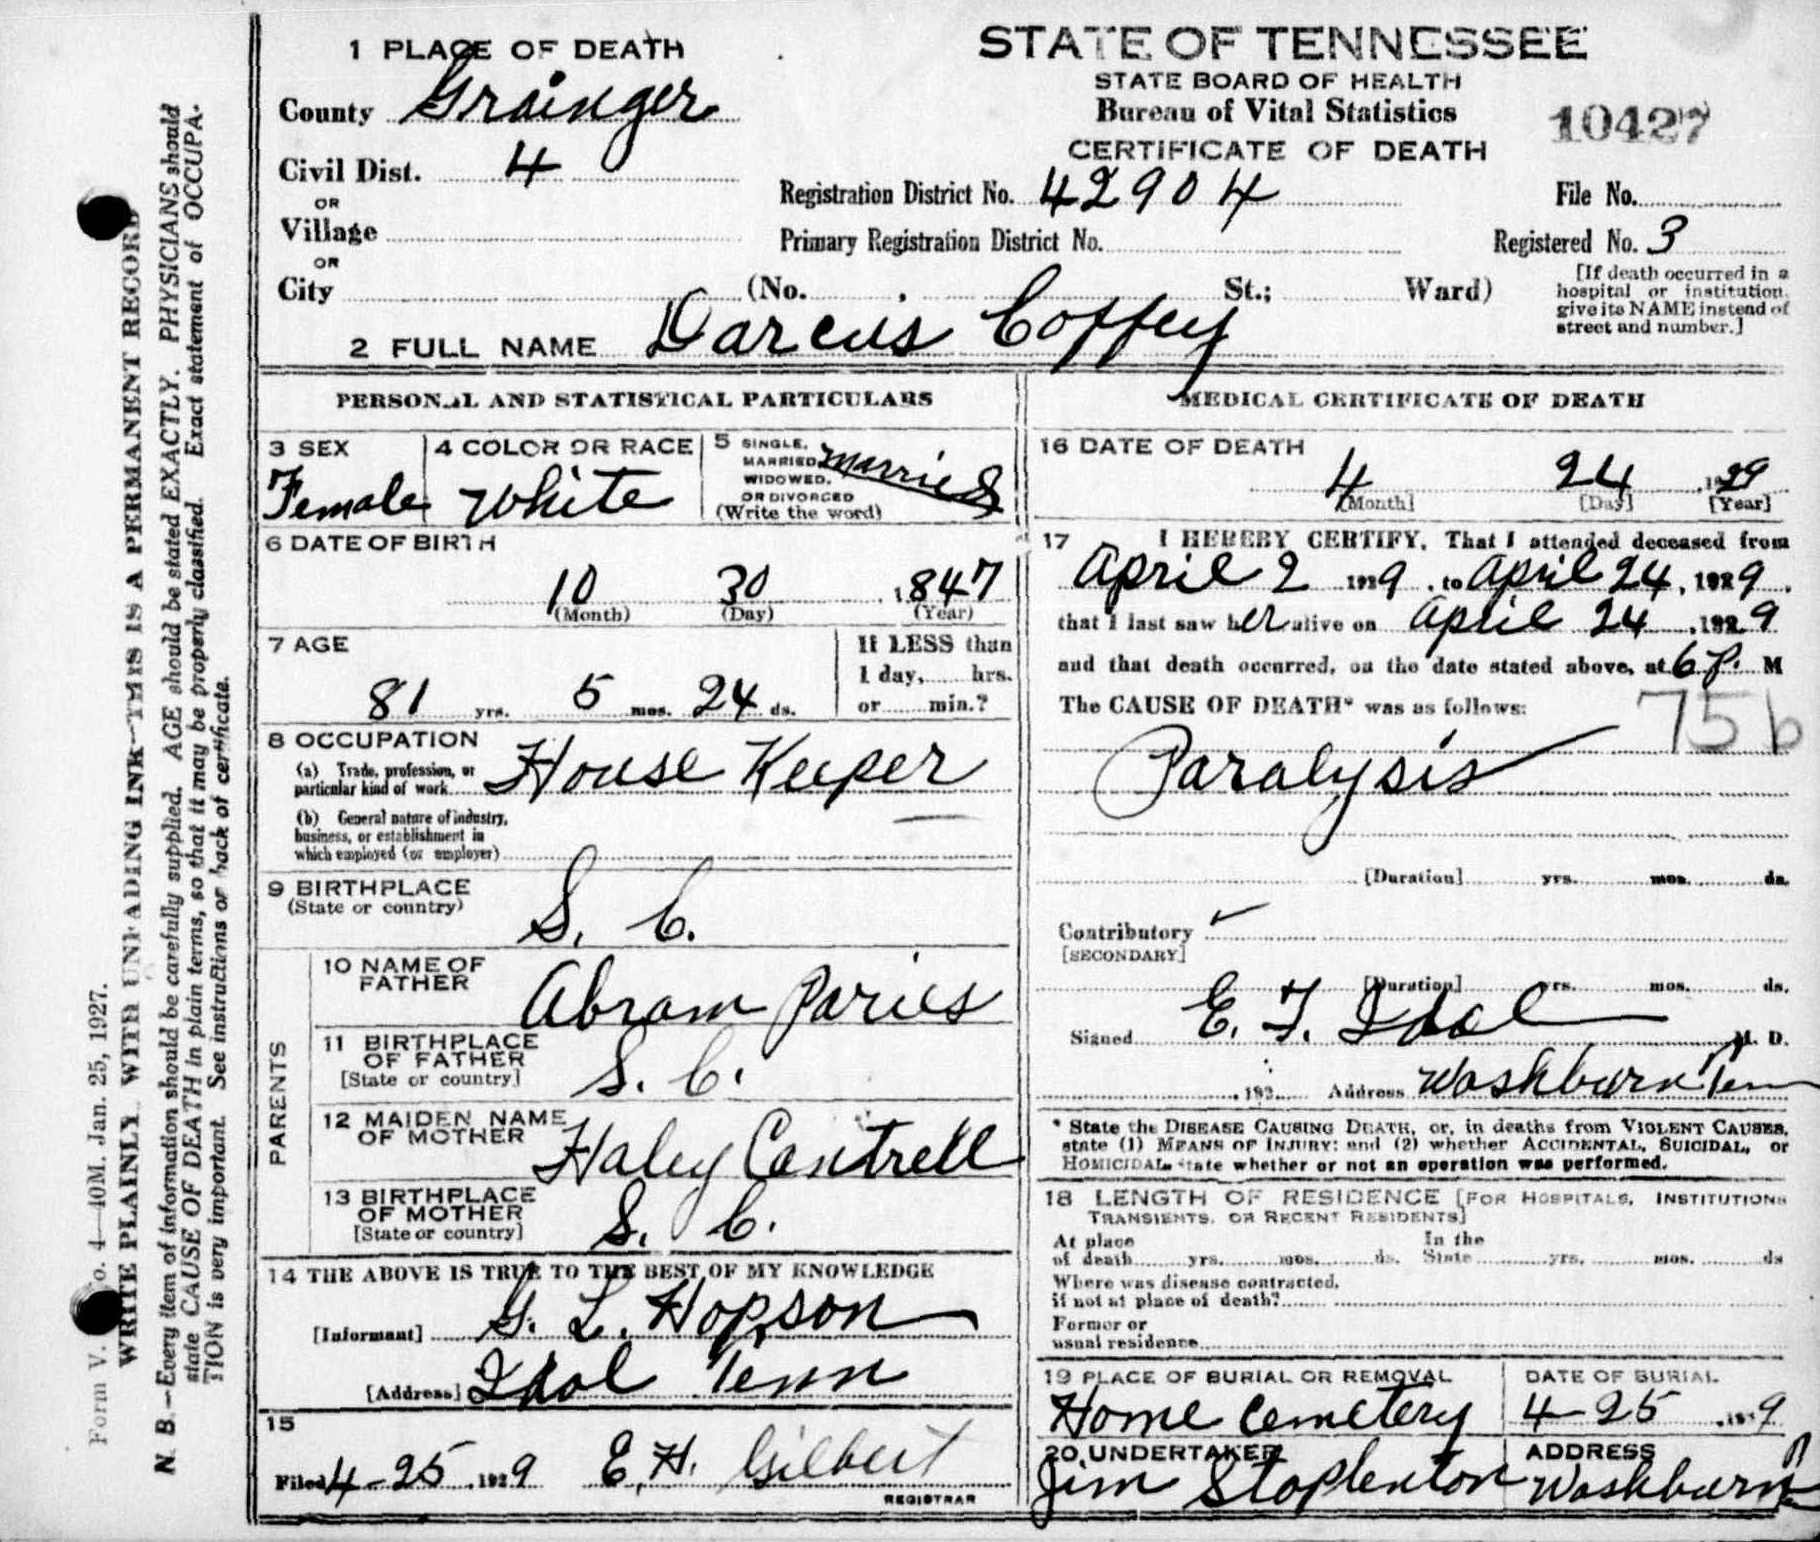 1 PLACE OF DEATH
County Grainger
Civil Dist. 4
OR
Village
OR
City (No. St.; Ward)
STATE OF TENNESSEE
STATE BOARD OF HEALTH
Bureau of Vital Statistics
CERTIFICATE OF DEATH
10427
Registration District No. 42904
File No.
Primary Registration District No.
Registered No. 3
[If death occurred in a
hospital or institution,
give its NAME instead of
street and number.]
2 FULL NAME Darcus Coffey
PERSONAL AND STATISTICAL PARTICULARS
3 SEX
Female
4 COLOR OR RACE
White
5 SINGLE,
MARRIED
WIDOWED,
OR DIVORCED
(Write the word)
married
6 DATE OF BIRTH
10 30 , 1847
(Month) (Day) (Year)
7 AGE
81 yrs. 5 mos. 24 ds.
If LESS than
1 day, hrs.
or min.?
8 OCCUPATION
(a) Trade, profession, or
particular kind of work House Keeper
(b) General nature of industry,
business, or establishment in
which employed (or employer)
9 BIRTHPLACE
(State or country)
S. C.
PARENTS
10 NAME OF
FATHER
Abram Paries
11 BIRTHPLACE
OF FATHER
[State or country]
S. C.
12 MAIDEN NAME
OF MOTHER
Haley Cantrell
13 BIRTHPLACE
OF MOTHER
[State or country]
S. C.
14 THE ABOVE IS TRUE TO THE BEST OF MY KNOWLEDGE
[Informant] G. L. Hopson
[Address] Idol Tenn
15
Filed 4-25, 1929 E. H. Gilbert
REGISTRAR
MEDICAL CERTIFICATE OF DEATH
16 DATE OF DEATH
4 24 , 1929
[Month] [Day] [Year]
17 I HEREBY CERTIFY, That I attended deceased from
April 2 1929, to April 24, 1929.
that I last saw her alive on April 24, 1929
and that death occurred, on the date stated above, at 6 P. M
The CAUSE OF DEATH* was as follows:
75b
Paralysis
[Duration] yrs. mos. ds.
Contributory
[SECONDARY]
[Duration] yrs. mos. ds.
Signed E. F. Idol M. D.
, 192 Address Washburn Tenn
* State the DISEASE CAUSING DEATH, or, in deaths from VIOLENT CAUSES,
state (1) MEANS OF INJURY; and (2) whether ACCIDENTAL, SUICIDAL, or
HOMICIDAL, state whether or not an operation was performed.
18 LENGTH OF RESIDENCE [FOR HOSPITALS, INSTITUTIONS
TRANSIENTS, OR RECENT RESIDENTS]
At place In the
of death yrs. mos. ds. State yrs. mos. ds
Where was disease contracted,
if not at place of death?
Former or
usual residence
19 PLACE OF BURIAL OR REMOVAL
Home Cemetery
DATE OF BURIAL
4-25, 1929
20 UNDERTAKER
Jim Staplenton
ADDRESS
Washburn
Form V. S. No. 4—40M. Jan. 25, 1927.
WRITE PLAINLY WITH UNFADING INK—THIS IS A PERMANENT RECORD
N. B.—Every item of information should be carefully supplied. AGE should be stated EXACTLY. PHYSICIANS should
state CAUSE OF DEATH in plain terms, so that it may be properly classified. Exact statement of OCCUPA-
TION is very important. See instructions on back of certificate.